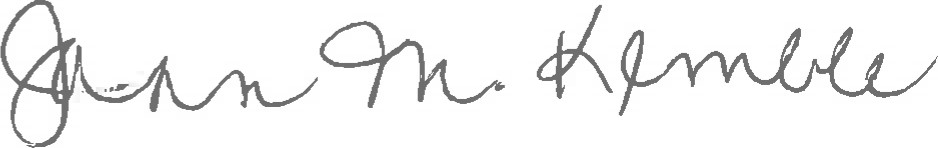 John M. Kemble